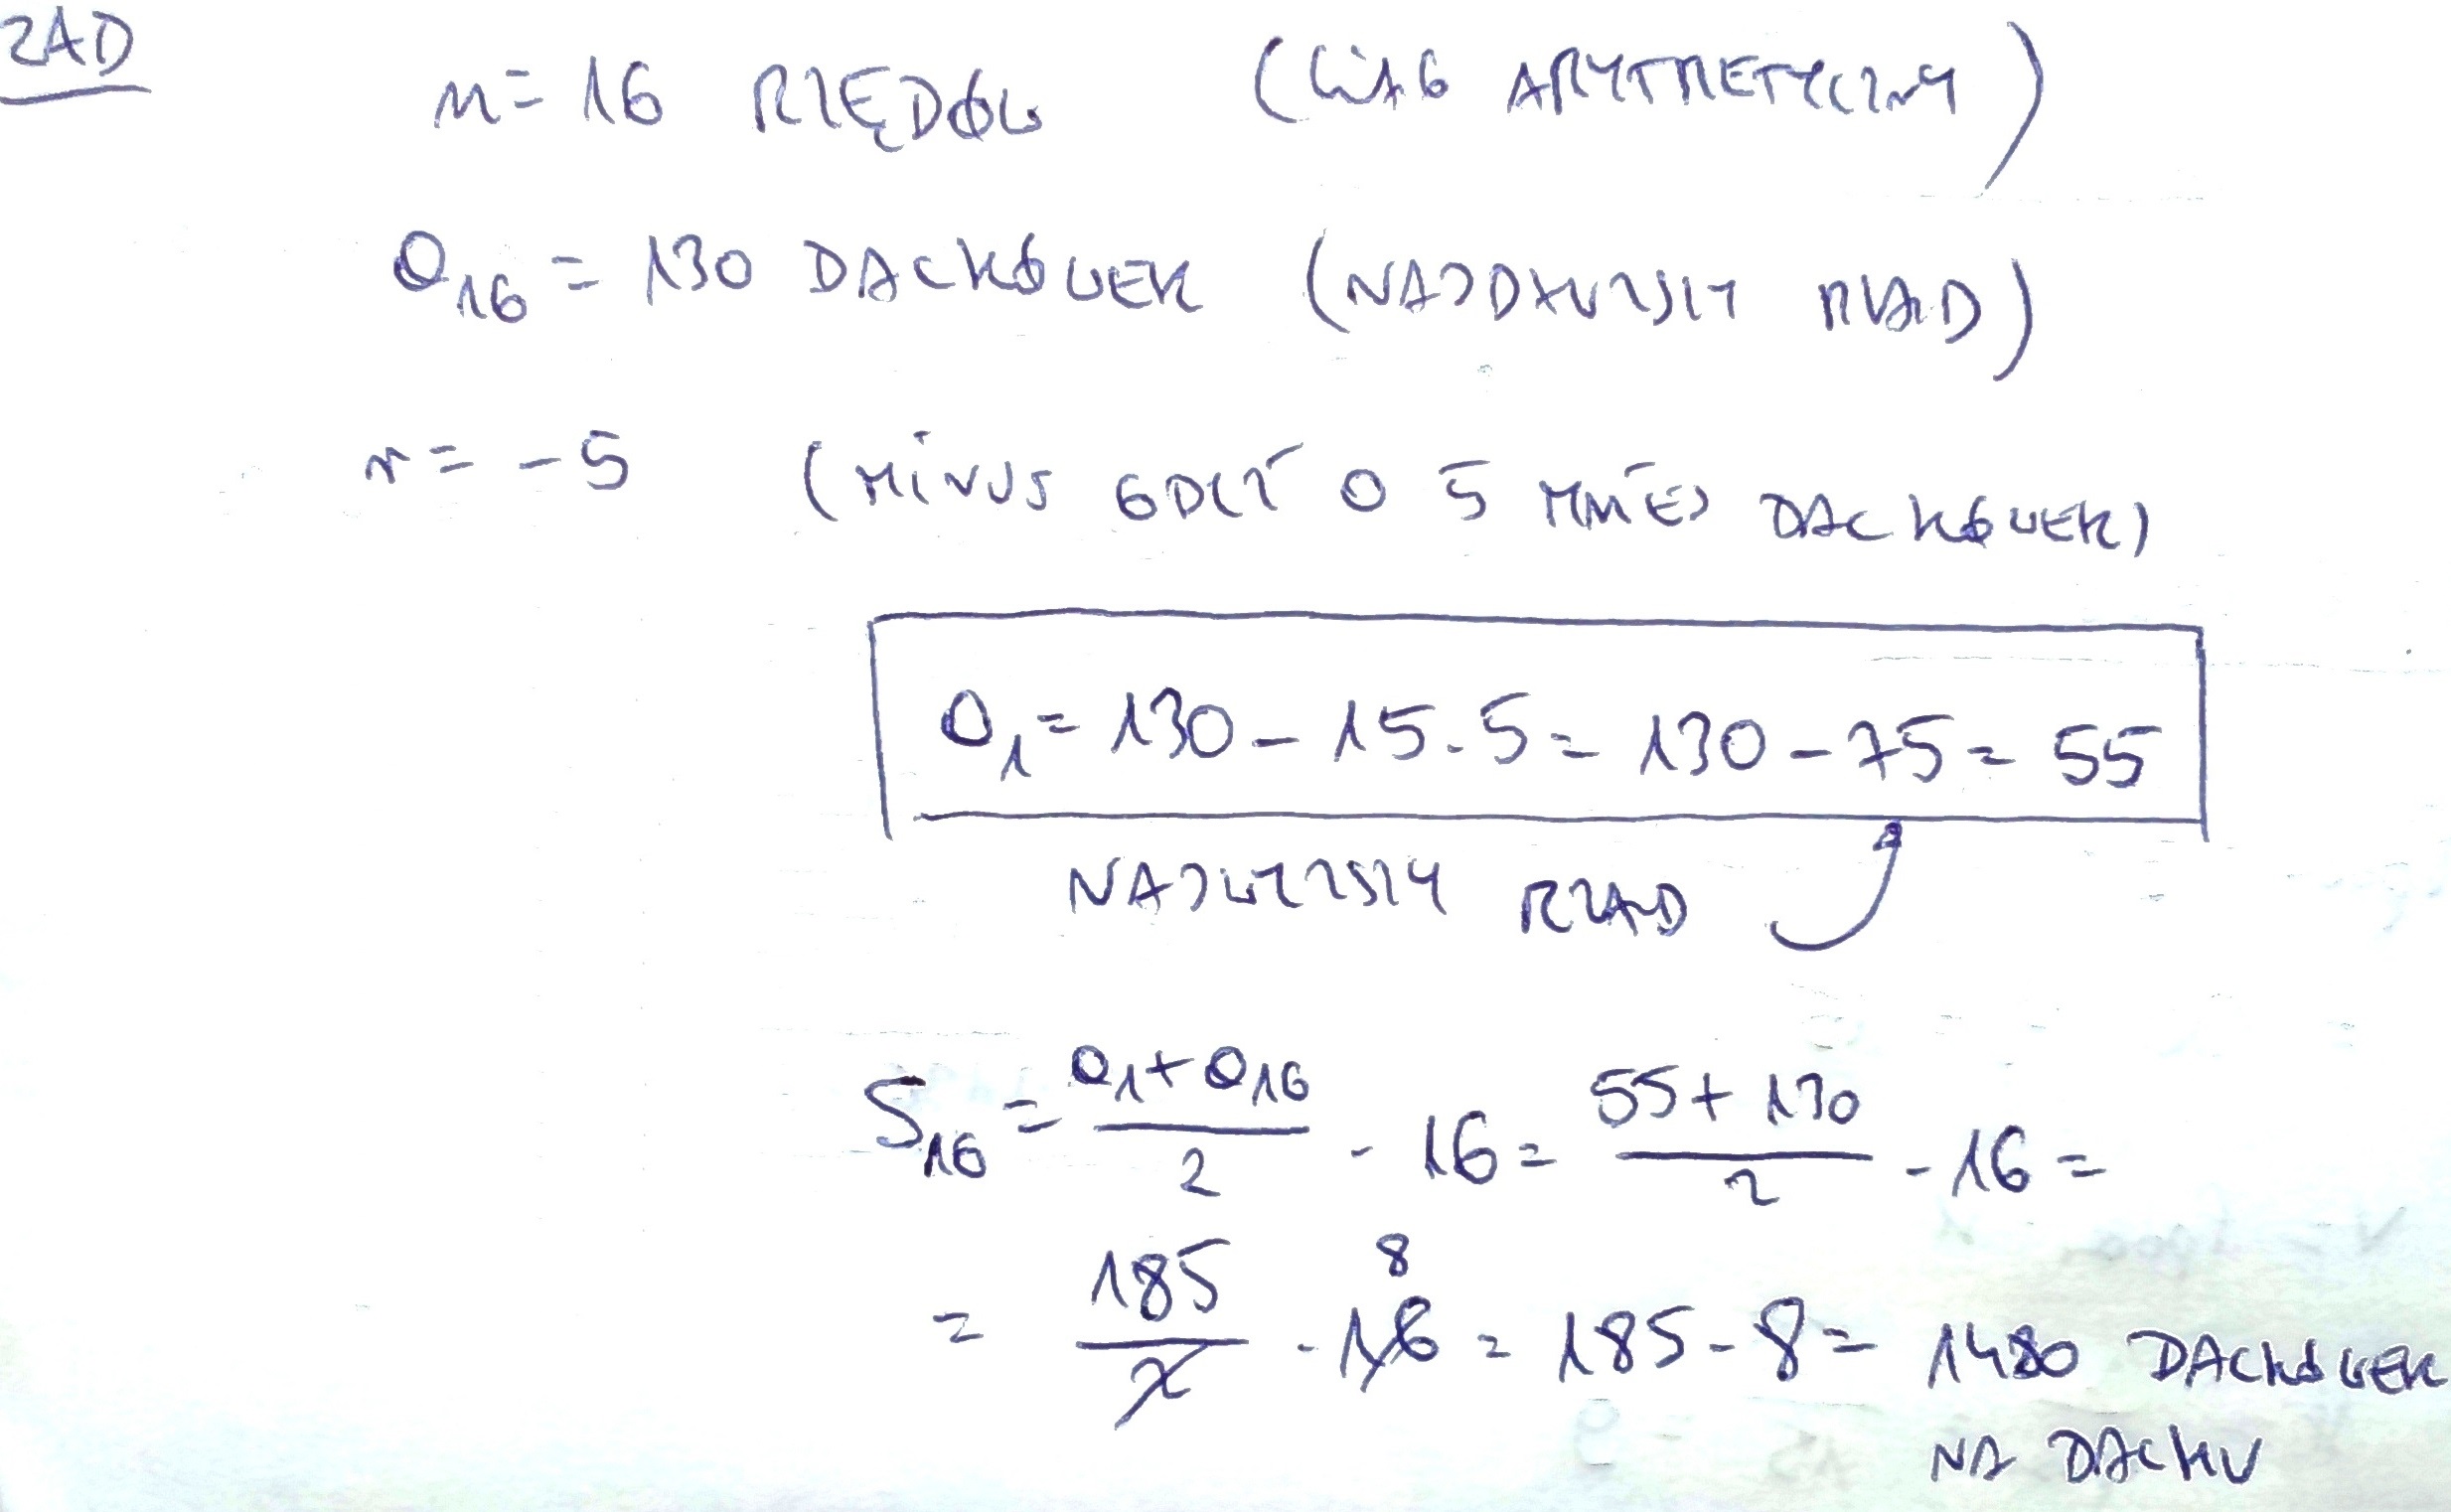 ZAD
n = 16 RZĘDÓW (CIĄG ARYTMETYCZNY)
a₁₆ = 130 DACHÓWEK (NAJDŁUŻSZY RZĄD)
r = -5 (MINUS GDYŻ O 5 MNIEJ DACHÓWEK)
a₁ = 130 - 15 · 5 = 130 - 75 = 55
NAJWYŻSZY RZĄD
S₁₆ = (a₁ + a₁₆)/2 · 16 = (55 + 130)/2 · 16 =
= 185/2 · 16 8 = 185 · 8 = 1480 DACHÓWEK
NA DACHU